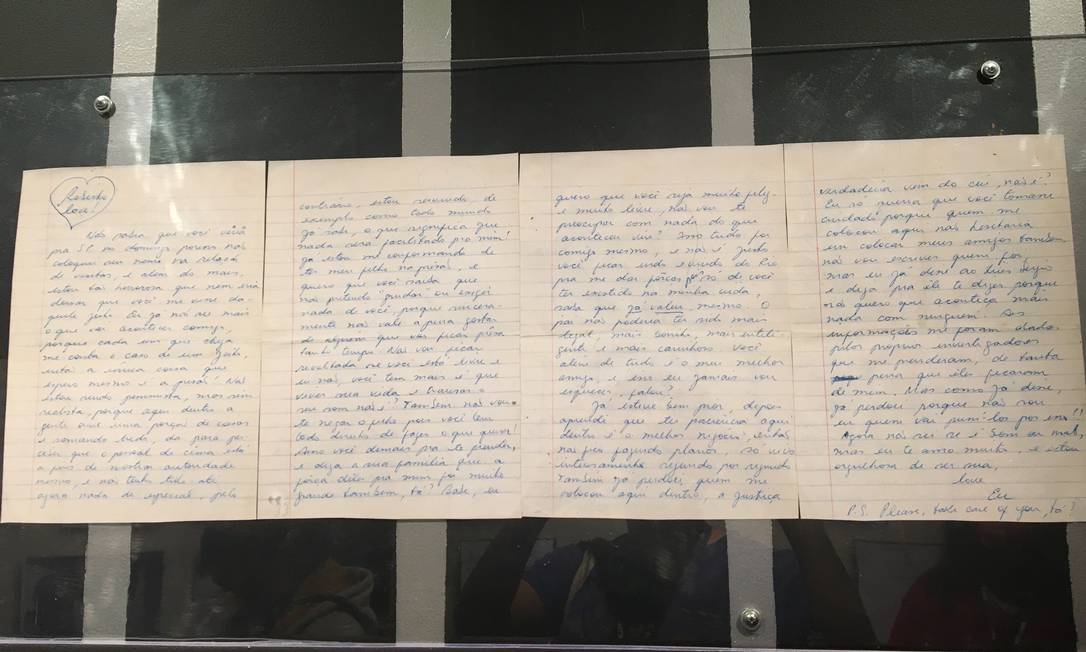 Roberto
love!
Não sabia que você viria
pra SP no domingo porisso não
coloquei seu nome na relação
de visitas, e além do mais
estou tão horrorosa que nem iria
deixar que você me visse da-
quele jeito
o que vai acontecer comigo,
porque cada um que chega
me conta o caso de um jeito,
então a única coisa que
espero mesmo é a pena! Não
estou sendo pessimista, mas sem
realista, porque aqui dentro a
gente ouve uma porção de coisas
e somando tudo, dá para per-
ceber que o pessoal de cima está
a fim de mostrar autoridade
mesmo, e não tenho tido até
agora nada de especial, pelo
contrário, estou servindo de
exemplo como todo mundo
já sabe, o que significa que
nada será facilitado pra mim!
Já estou me conformando de
ter meu filho na prisão, e
quero que você saiba que
não pretendo grudar ou exigir
nada de você, porque sincera-
mente não vale a pena gostar
de alguém que vai ficar presa
tanto tempo. Não vou ficar
revoltada se você está livre e
eu não, você tem mais é que
viver sua vida e transar a
sua não é? Também não vou
te negar o filho pois você tem
todo direito de fazer o que quiser!
Amo você demais pra te prender,
e diga a sua família que a
força deles pra mim foi muito
grande também, tá? Baby, eu
quero que você seja muito feliz
e muito livre, não vou te
preocupar com nada do que
acontecer viu? Amo tudo por
comigo mesmo, e não é justo
você ficar indo e vindo do Rio
pra me dar forças só de você
ter existido na minha vida,
saiba que já valeu mesmo. O
pai não poderia ter sido mais
bonito, mais inteli-
gente e mais carinhoso. Você
além de tudo é o meu melhor
amigo, e isso eu jamais vou
esquecer, falou?
Já estive bem pior, depois
aprendi que ter paciência aqui
dentro é o melhor negócio, então
não fico fazendo planos, só vivo
intensamente segundo por segundo
Também já perdoei quem me
colocou aqui dentro, a justiça
verdadeira vem do céu, não é?
Eu só queria que você tomasse
cuidado porque quem me
colocou aqui não hesitaria
em colocar meus amigos também
não vou escrever quem foi,
mas eu já disse ao
e diga pra ele te dizer porque
não quero que aconteça mais
nada com ninguém! As
informações me foram dadas
pelos próprios investigadores
que me prenderam, de tanta
pena que eles ficaram
de mim. Mas como já disse,
já perdoei porque não sou
eu quem vai puní-los por isso!!
Agora não sei se é bom ou mal,
mas eu te amo muito, e estou
orgulhosa de ser sua,
love
Eu
P.S. Please, take care of you, tá?